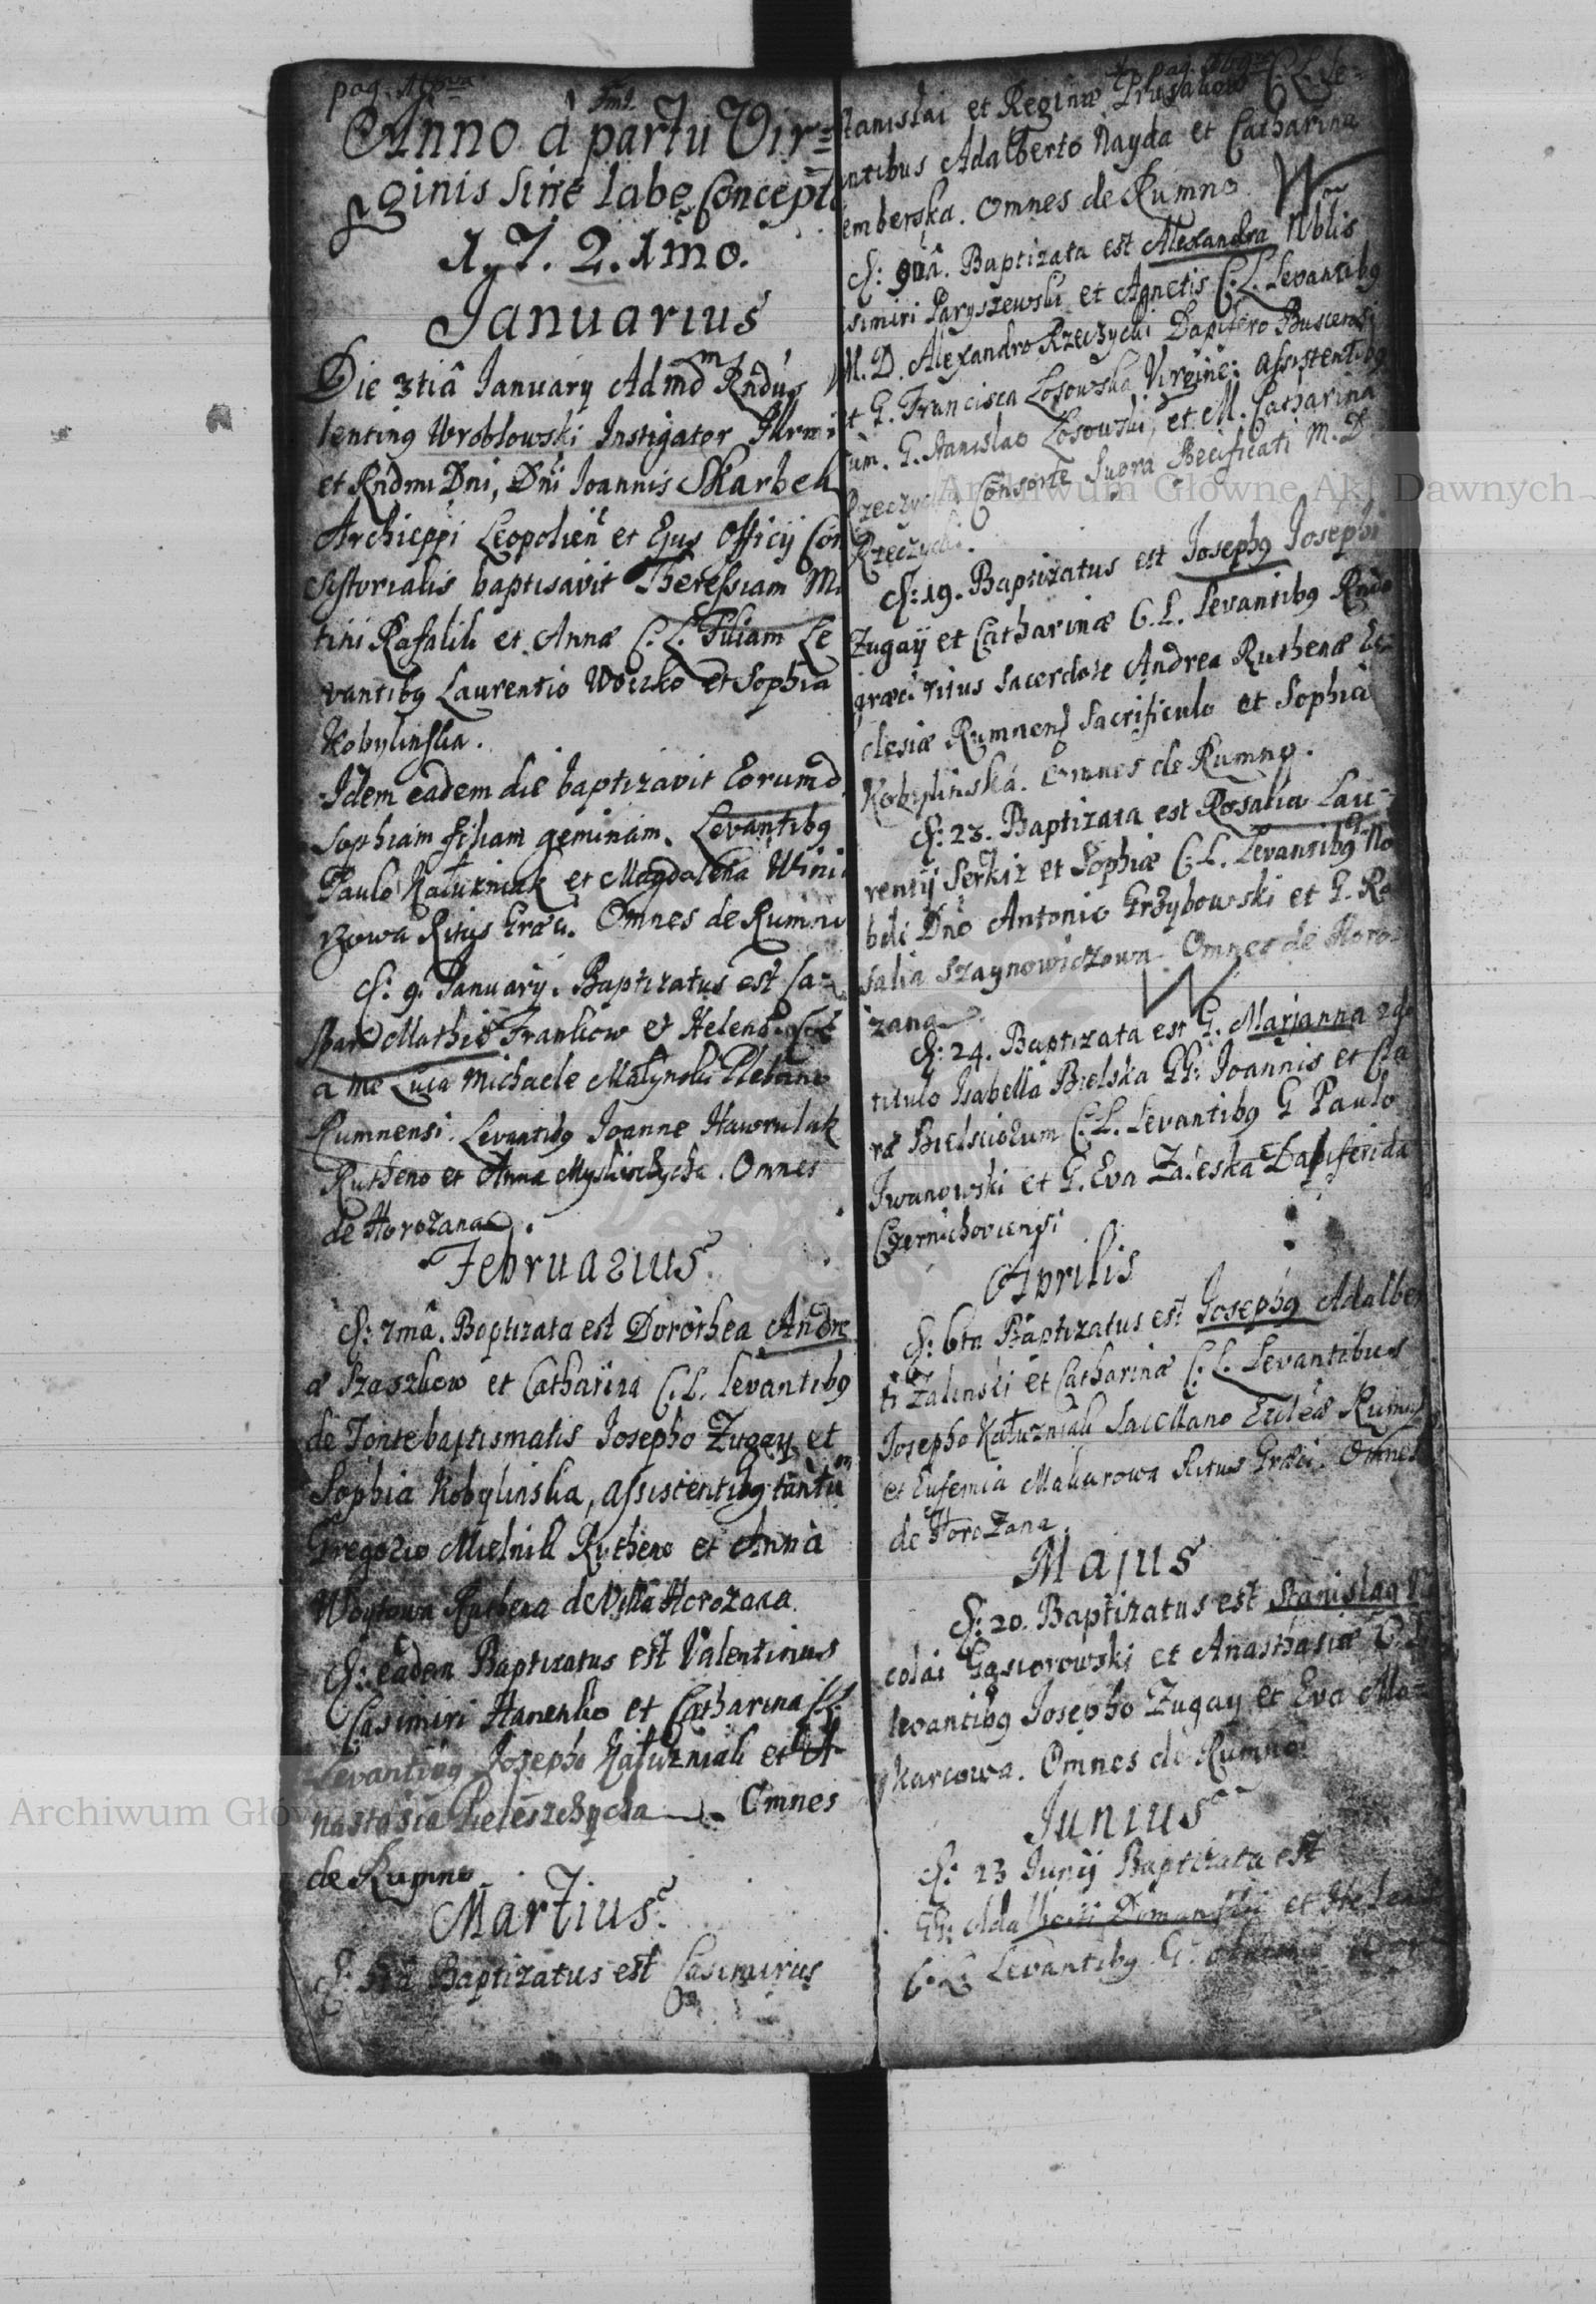 Anno à partu Vir=
ginis sine labe Concept
1.7.2.1mo.
Januarius
Die 3tiâ January Admd m Rndus
lentinq Wroblowski Instigator Illrmi
et Rndmi Dni, Dni Joannis Skarbek
Archieppi Leopolien et Ejus Officij Con
sistorialis baptisavit Theressiam M
tini Rafalik et Annæ C. L. Filiam Le
vantibq Laurentio Woizko et Sophia
Kobylinska.
Idem eadem die baptizavit Eorumd
Sophiam filiam geminam. Levantibq
Paulo Kałuzniak et Magdalena Wini
rzowa Ritus Græci. Omnes de Rumno
d: 9. January. Baptizatus est Ca=
spar Mathiæ Frankow et Helenæ C L
a me Luca Michaele Małynski Plebano
Rumnensi. Levantibq Joanne Hawrulak
Rutheno et Anna Mysliwchycha. Omnes
de Horozana.
Februarius
d: 2mâ. Baptizata est Dorothea Andre
æ Szaszkow et Catharina C. L. levantibq
de Fonte baptismatis Josepho Zugay et
Sophia Kobylinska, assistentibq tantũ
Gregorio Mielnik Rutheno et Anna
Woytowa Ruthena de Villa Horozana
d: eadem Baptizatus est Valentinus
Casimiri Hanenko et Catharina C.L.
Levantibq Josepho Kałuzniak et A
nastasia Heleszchycha. Omnes
de Rumno
Martius
d: Baptizatus est Casimirus
Stanislai et Reginæ Prusakow C. L. le=
ntibus Adalberto Nayda et Catharina
emberska. Omnes de Rumno
d: 9nâ. Baptizata est Alexandra Nblis
simiri Paryszewski et Agnetis C. L. Levantibq
M. D. Alexandro Rzeczycki Dapifero Buscensi
t G. Francisca Łosowska Virgine: assistentibq
um. G. Stanislao Łosowski, et M. Catharina
Rzeczycka Consorte supra specificati M. D.
Rzeczycki.
d: 19. Baptizatus est Josephq Josephi
Zugaij et Catharinæ C. L. Levantibq Rndo
græci ritus Sacerdote Andrea Ruthenæ Ec=
clesiæ Rumnens Sacrificulo et Sophia
Kobylinska. Omnes de Rumno.
d: 23. Baptizata est Rosalia Lau=
rentij Serkiz et Sophiæ C. L. Levantibq No
bili Dno Antonio Grzybowski et G. Ro
salia Szaynowiczowa. Omnes de Horo=
zana
d: 24. Baptizata est G. Marjanna 2do
titulo Isabella Bielska GG: Joannis et Cla
ræ Bielsciorum C. L. Levantibq G Paulo
Iwanowski et G. Eva Zaleska Dapiferida
Czernichoviensi
Aprilis
d: 6ta Baptizatus est Josephq Adalber
ti Zalinski et Catharinæ C. L. Levantibus
Josepho Kałuzniak Sacellano Eccleæ Rumn
et Eufemia Makarowa Ritus Græci. Omnes
de Horozana.
Majus
d: 20. Baptizatus est Stanislaq Ni
colai Gąsiorowski et Anasthasiæ C. L.
levantibq Josepho Zugay et Eva Ma=
karcowa. Omnes de Rumno.
Junius
d: 23 Junij Baptizata est
GG: Adalberti Domanski et Helen
C. L. Levantibq G.